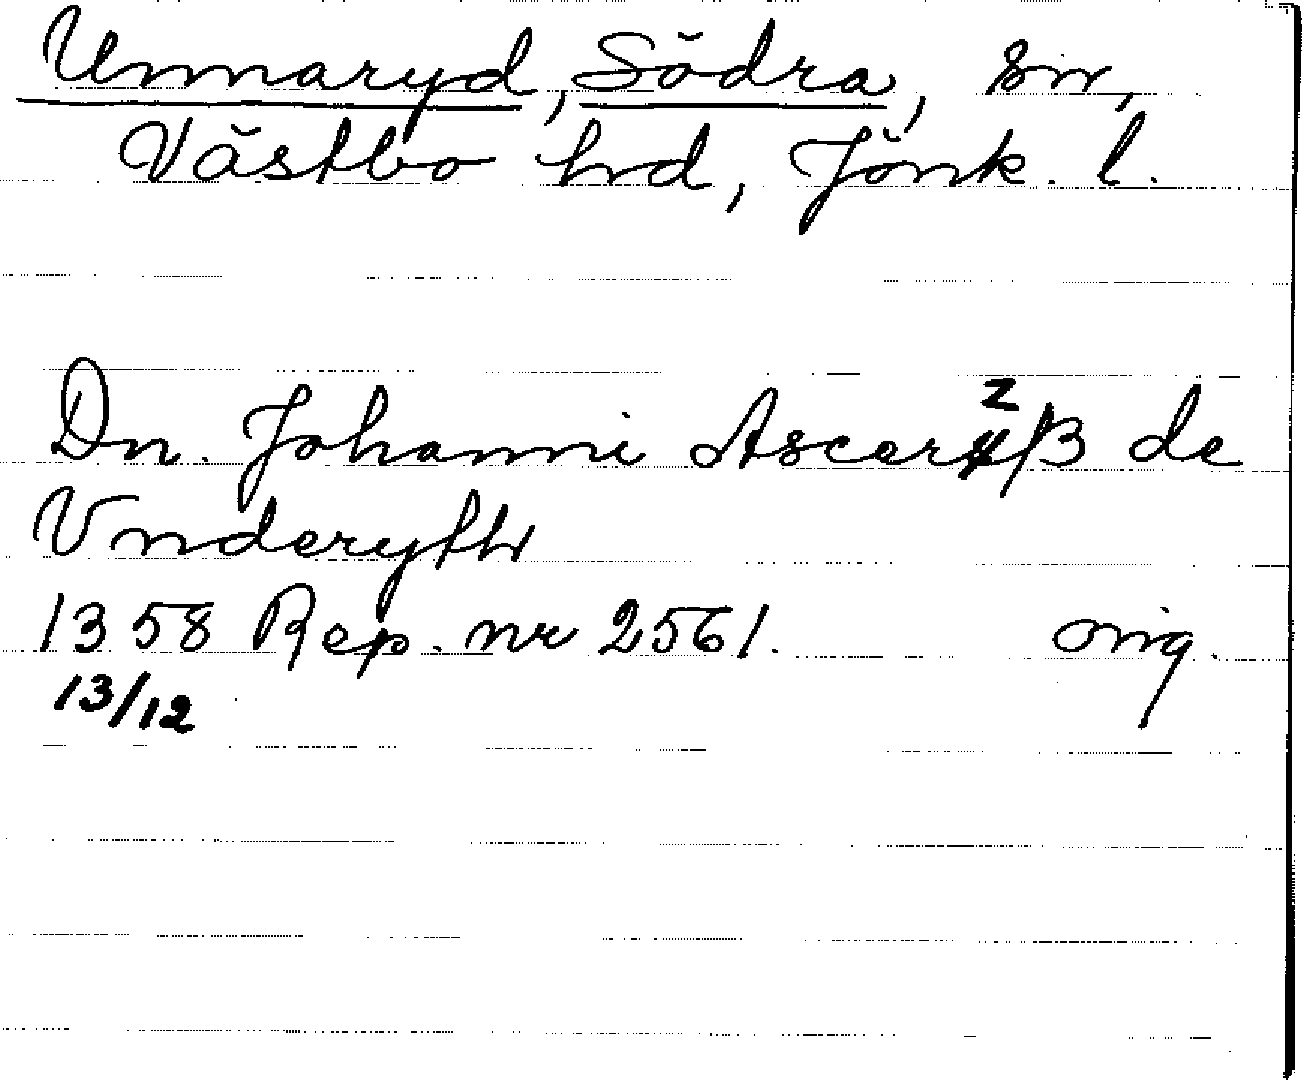 Unnaryd, Södra, sn,
Västbo hd, Jönk. l.
Dn. Johanni Ascerzß de
Vnderyth
1358 Rep. nr 2561. orig.
13/12